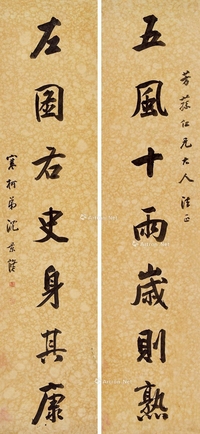 芳蓀仁兄大人法正
五風十雨歲則熟
左圖右史身其康
弟沈景修